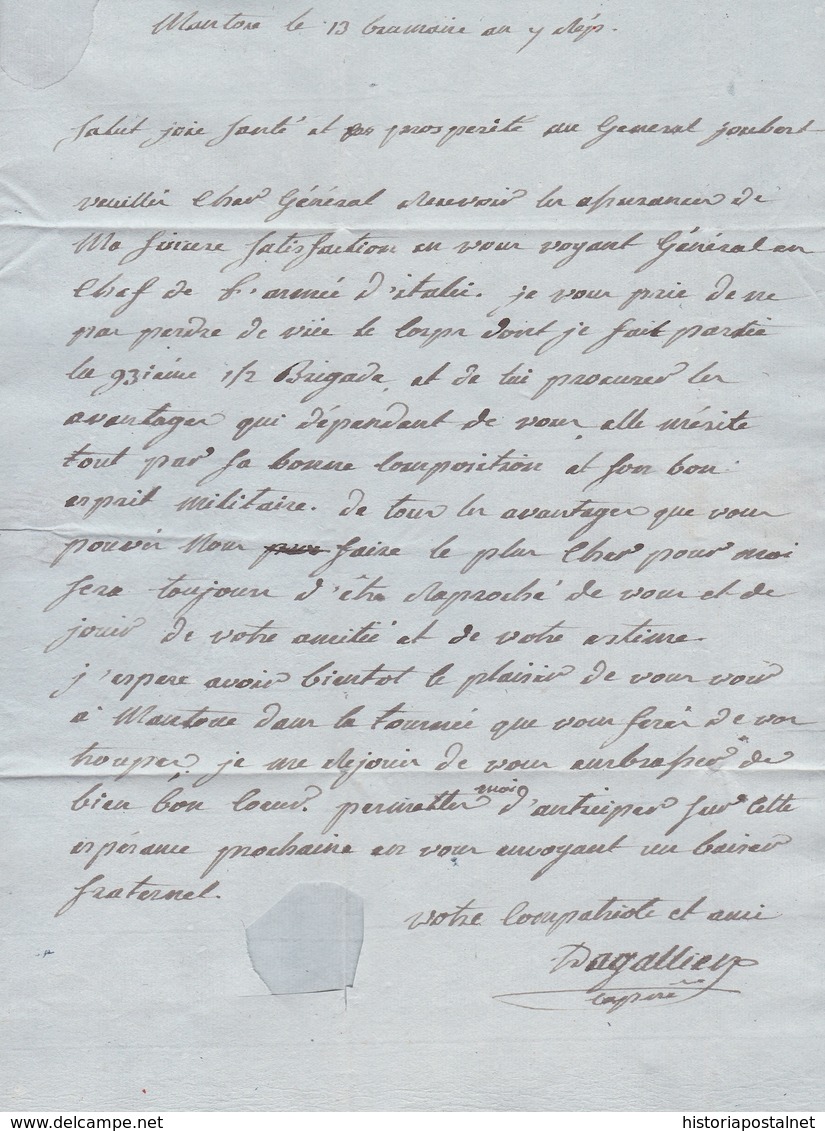 Mantoue le 13 brumaire an 7 Rép.
Salut joie santé et prosperité au General joubert
veuillés Cher Général Recevoir les assurances de
Ma sincere satisfaction en vous voyant Général en
Chef de l'armée d'italie. je vous prie de ne
pas perdre de vüe le Corps dont je fait partie
la 93ieme 1/2 Brigade, et de lui procurer les
avantages qui dépendent de vous elle mérite
tout par sa bonne Composition et son bon
esprit militaire. de tous les avantages que vous
pouvés Nous faire le plus Cher pour moi
sera toujours d'être Raproché de vous et de
jouir de votre amitié et de votre estime.
j'espere avoir bientot le plaisir de vous voir
à Mantoue dans la tournée que vous ferés de vos
troupes je me Rejouis de vous embrasser de
bien bon Coeur. permettes moi d'anticiper sur Cette
espérance prochaine en vous envoyant un baiser
fraternel.
votre Compatriote et ami
Dagallier
historiapostalnet